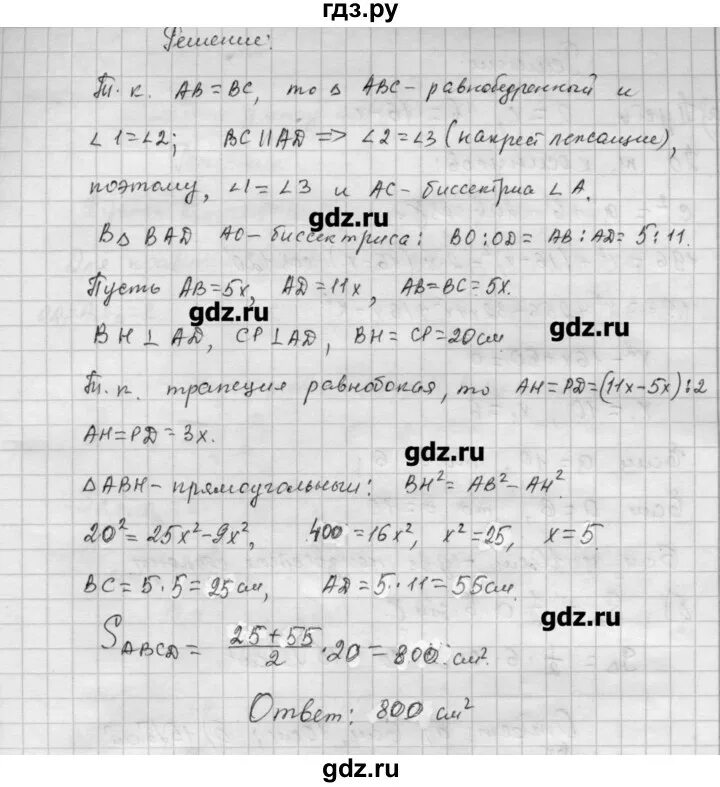 гдз.ру
Решение:
Т.к. AB=BC, то △ ABC - равнобедренный и
∠1=∠2; BC||AD => ∠2=∠3 (накрест лежащие),
поэтому, ∠1=∠3 и AC-биссектриа ∠A.
gdz.ru
В△ BAD AO-биссектриса: BO:OD= AB:AD= 5:11.
Пусть AB=5x, AD=11x, AB=BC=5x.
gdz.ru
gdz.ru
BH⊥AD, CP⊥AD, BH=CP=20см
Т.к. трапеция равнобокая, то AH=PD=(11x-5x):2
AH=PD=3x.
gdz.ru
△ABH-прямоугольный: BH²=AB²-AH².
20²=25x²-9x², 400=16x², x²=25, x=5.
BC=5·5=25см, AD=5·11=55см
gdz.ru
S_ABCD = (25+55)/2 ·20=800 см².
Ответ: 800 см²
gdz.ru